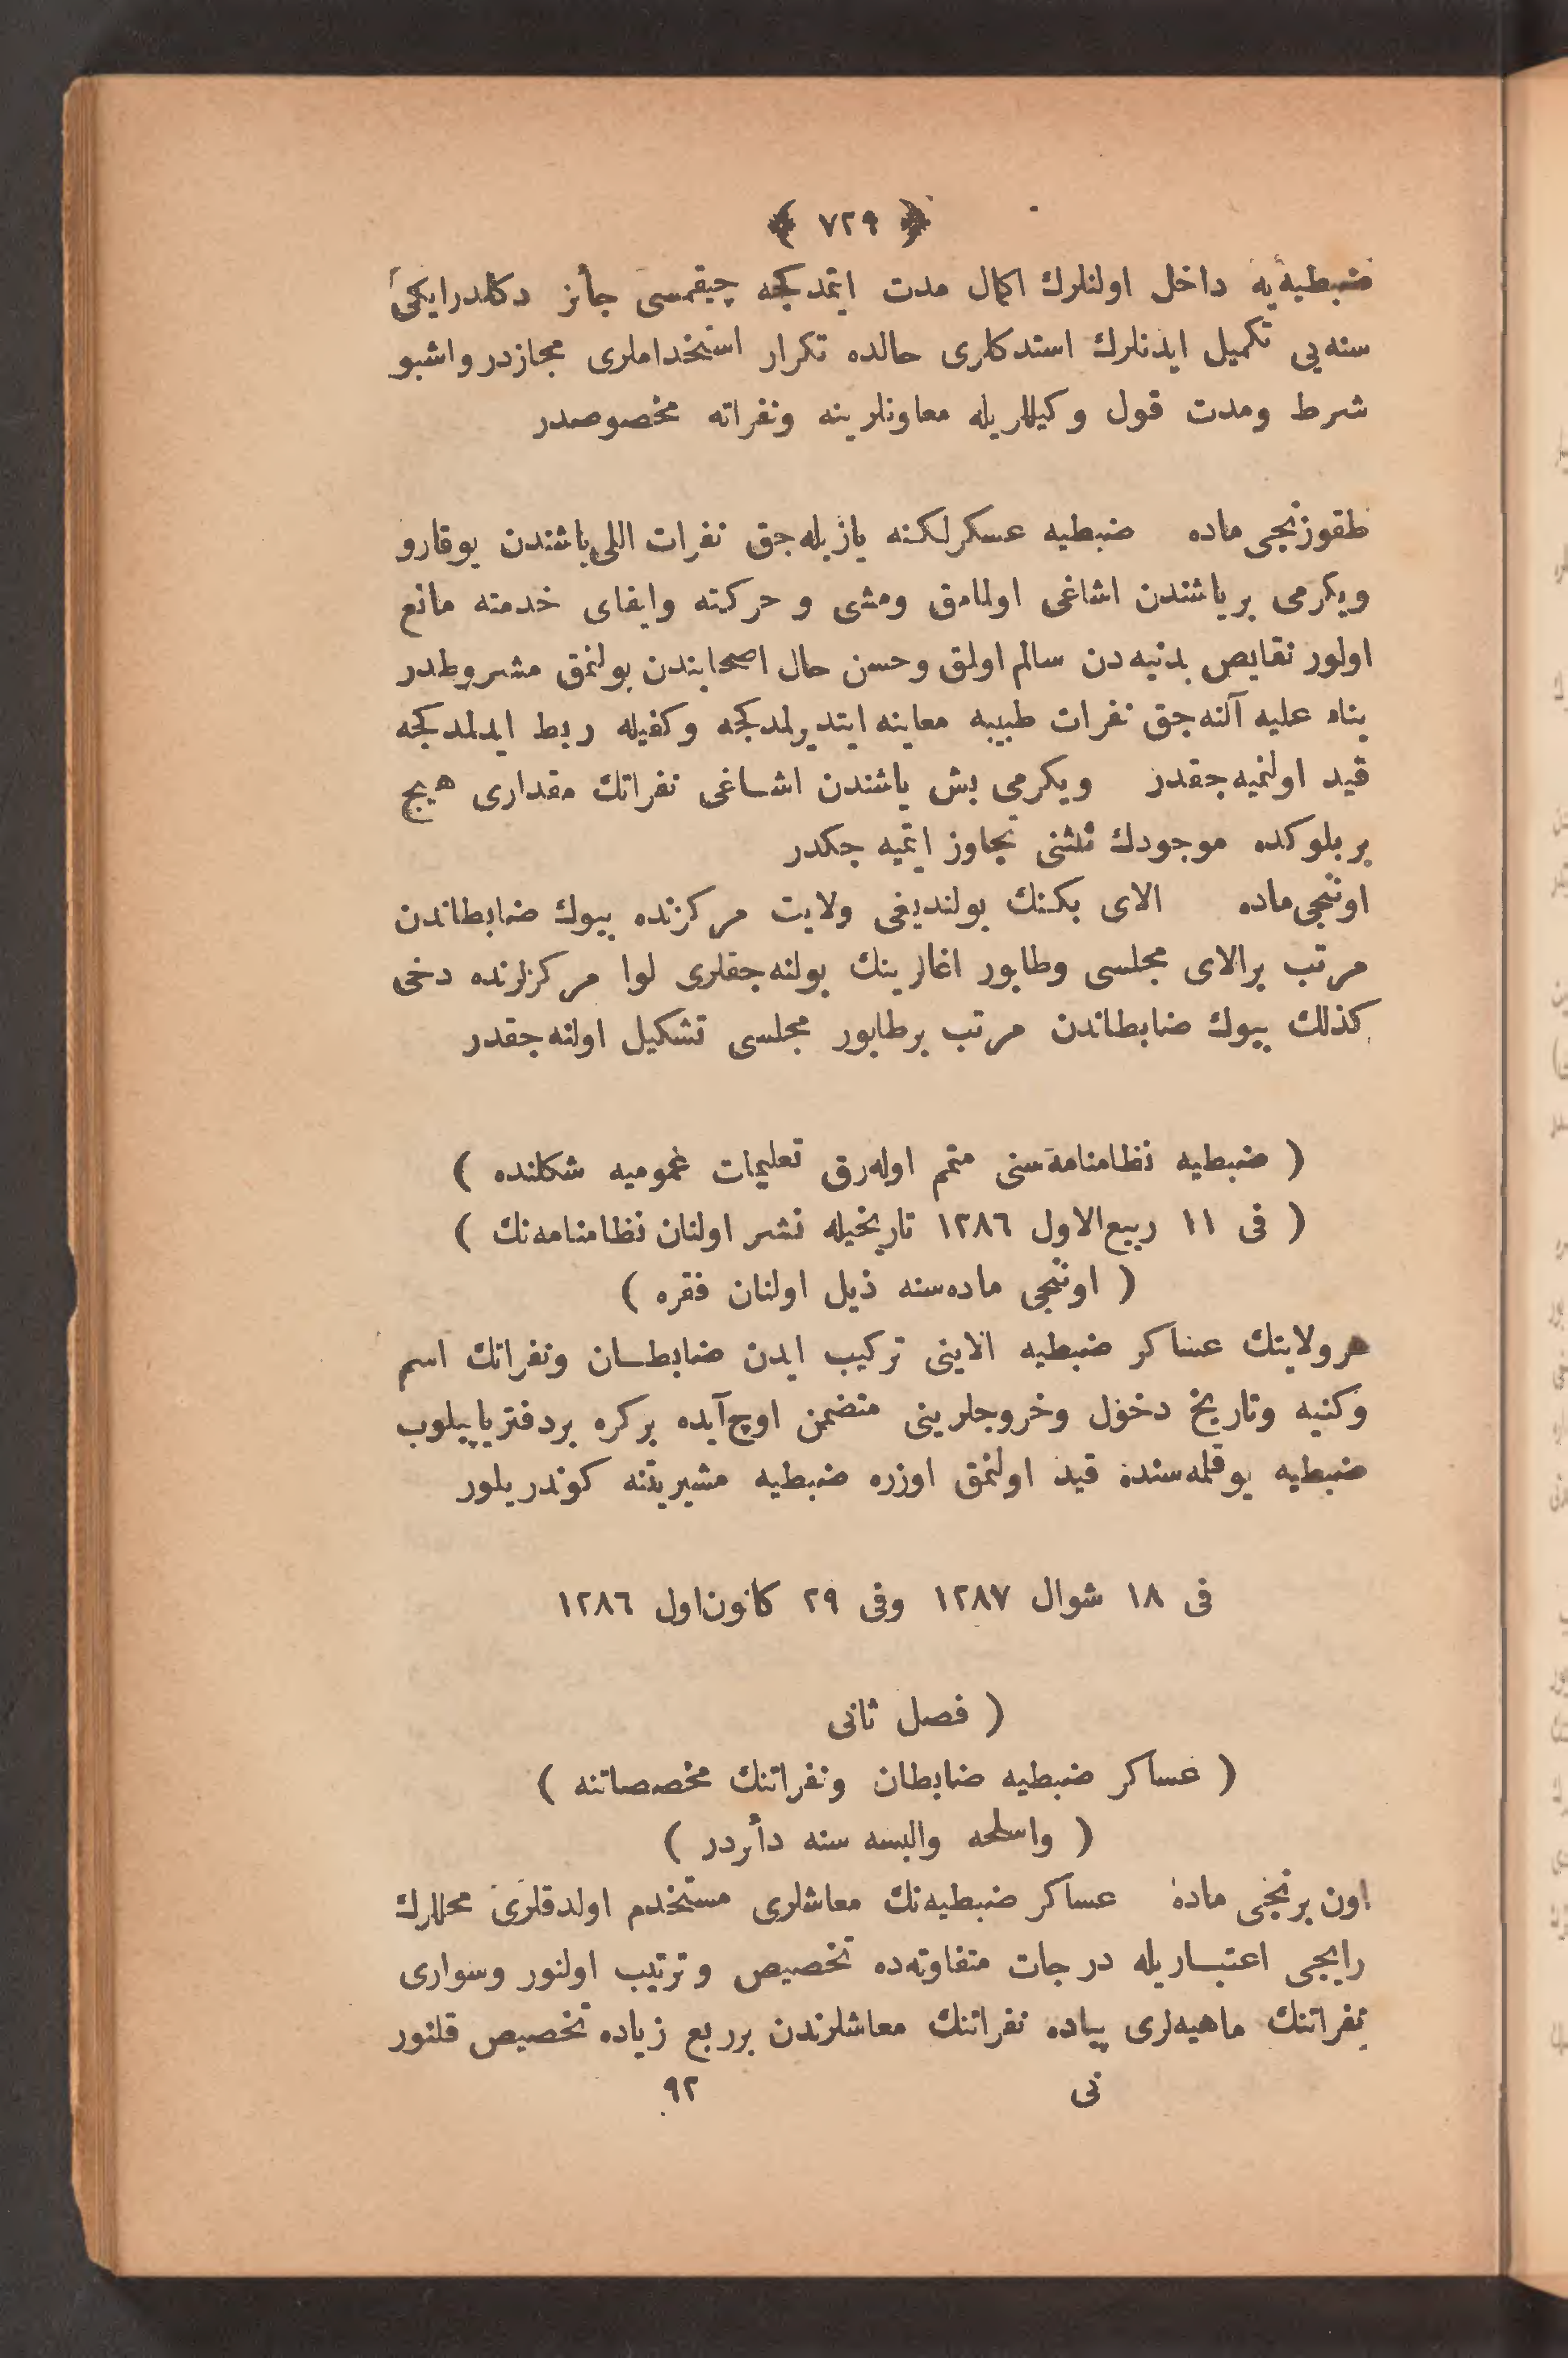 ﴿ ٧٢٩ ﴾
ضبطیه‌یه داخل اولنلرك اکمال مدت ایتمدکجه چیقمسی جائز دکلدر ایکی
سنه‌یی تکمیل ایدنلرك استدکلری حالده تکرار استخداملری مجازدر واشبو
شرط ومدت قول وکیللریله معاونلرینه ونفراته مخصوصدر
طقوزنجی ماده ضبطیه عسکرلکنه یازیله‌جق نفرات اللی یاشندن یوقارو
ویکرمی بر یاشندن اشاغی اولمامق ومشی و حرکته وایفای خدمته مانع
اولور نقایص بدنیه‌دن سالم اولمق وحسن حال اصحابندن بولنمق مشروطدر
بناء علیه آلنه‌جق نفرات طبیبه معاینه ایتدیرلمدکجه وکفیله ربط ایدلمدکجه
قید اولنمیه‌جقدر ویکرمی بش یاشندن اشاغی نفراتك مقداری هیچ
بر بلوکده موجودك ثلثنی تجاوز ایتمیه جکدر
اوننجی ماده الای بکنك بولندیغی ولایت مرکزنده بیوك ضابطاندن
مرتب برالای مجلسی وطابور اغالرینك بولنه‌جقلری لوا مرکزلرنده دخی
کذلك بیوك ضابطاندن مرتب برطابور مجلسی تشکیل اولنه‌جقدر
( ضبطیه نظامنامه‌سنی متمم اوله‌رق تعلیمات عمومیه شکلنده )
( فی ١١ ربیع‌الاول ١٢٨٦ تاریخیله نشر اولنان نظامنامه‌نك )
( اوننجی ماده‌سنه ذیل اولنان فقره )
هر ولایتك عساکر ضبطیه الاینی ترکیب ایدن ضابطان ونفراتك اسم
وکنیه وتاریخ دخول وخروجلرینی متضمن اوچ آیده برکره بردفتر یاپیلوب
ضبطیه یوقلمه‌سنده قید اولنمق اوزره ضبطیه مشیریتنه کوندریلور
فی ١٨ شوال ١٢٨٧ وفی ٢٩ کانون‌اول ١٢٨٦
( فصل ثانی
( عساکر ضبطیه ضابطان ونفراتنك مخصصاتنه )
( واسلحه والبسه سنه دأردر )
اون برنجی ماده عساکر ضبطیه‌نك معاشلری مستخدم اولدقلری محللرك
رایجی اعتباریله درجات متفاوته‌ده تخصیص وترتیب اولنور وسواری
نفراتنك ماهیه‌لری پیاده نفراتنك معاشلرندن برربع زیاده تخصیص قلنور
نی ٩٢